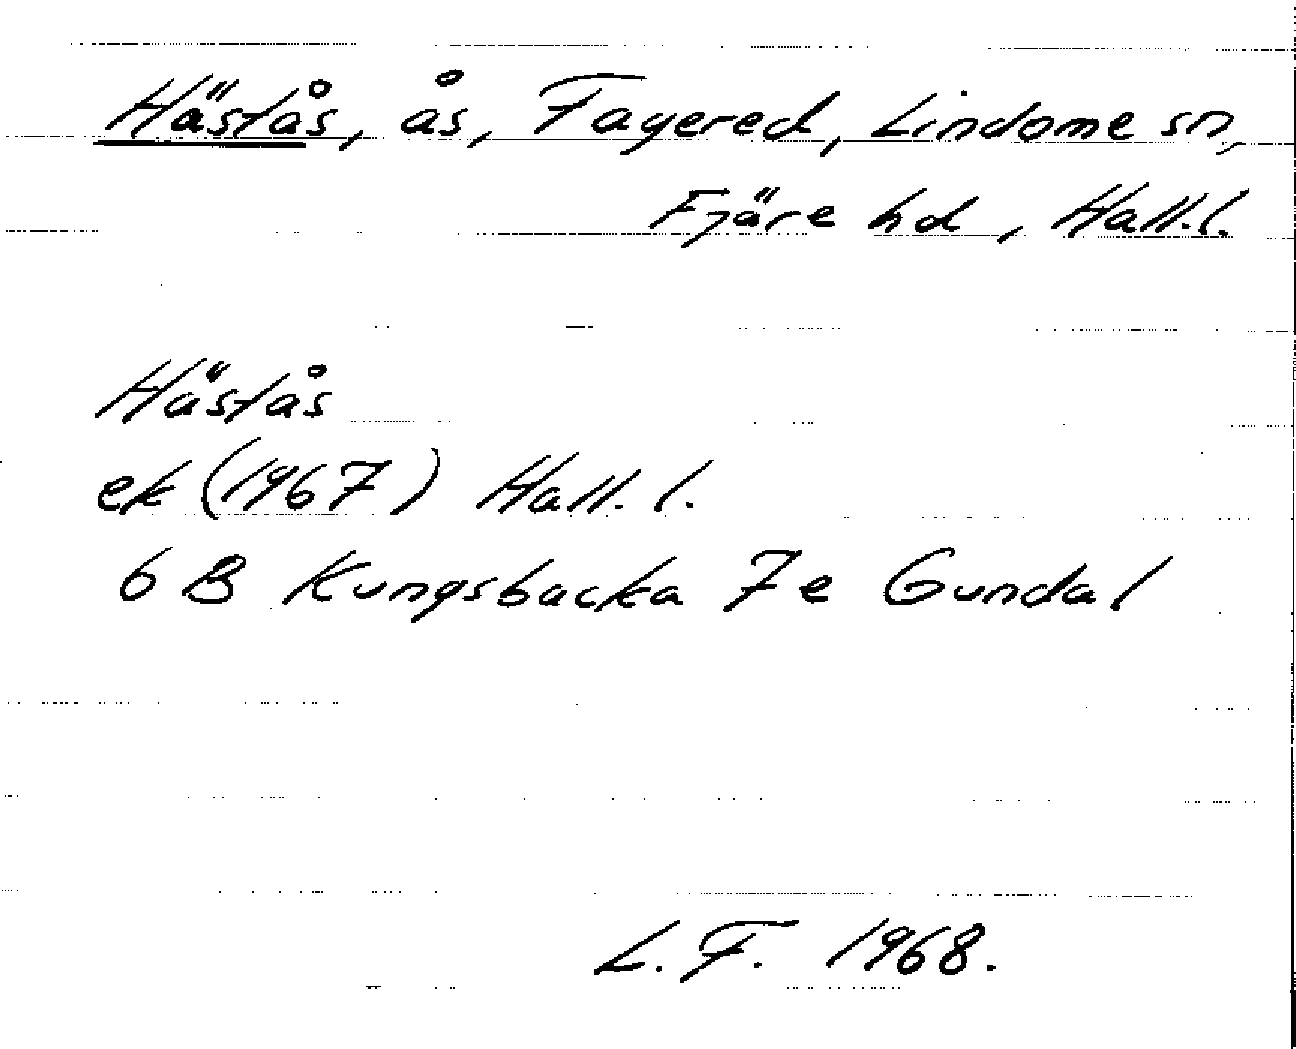 Hästås, ås, Fagered, Lindome sn,
Fjäre hd, Hall.l.
Hästås
ek (1967) Hall. l.
6 B Kungsbacka 7e Gundal
L.F. 1968.